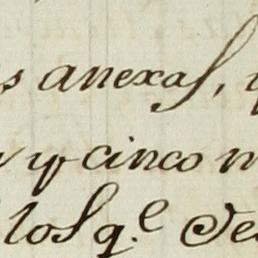 s anexas,
y cinco m
los q.e De